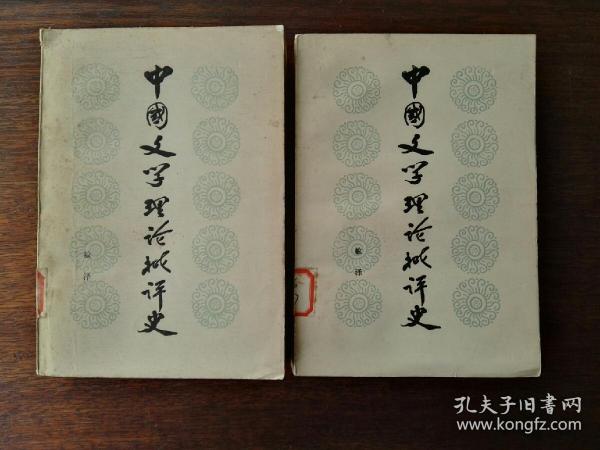 中國文学理论批评史
敏泽
中國文学理论批评史
敏泽
孔夫子旧書网
www.kongfz.com